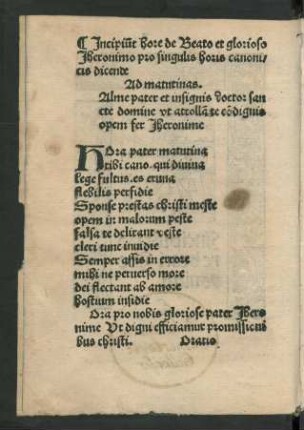 ¶ Incipiūt hore de Beato et glorioso
Iheronimo pro singulis horis canoni/
cis dicende
Ad matutinas.
Alme pater et insignis doctor san
cte domine vt attollā te cōdignis
opem fer Iheronime
HOra pater matutina
tibi cano. qui diuina
lege fultus. es eruna
flebilis perfidie
Sponse prestas christi meste
opem in malorum peste
falsa te delirant veste
cleri tunc inuidie
Semper assis in errore
mihi ne peruerso more
dei flectant ab amore
hostium insidie
Ora pro nobis gloriose pater Ihero
nime Vt digni efficiamur promissioni
bus christi. Oratio